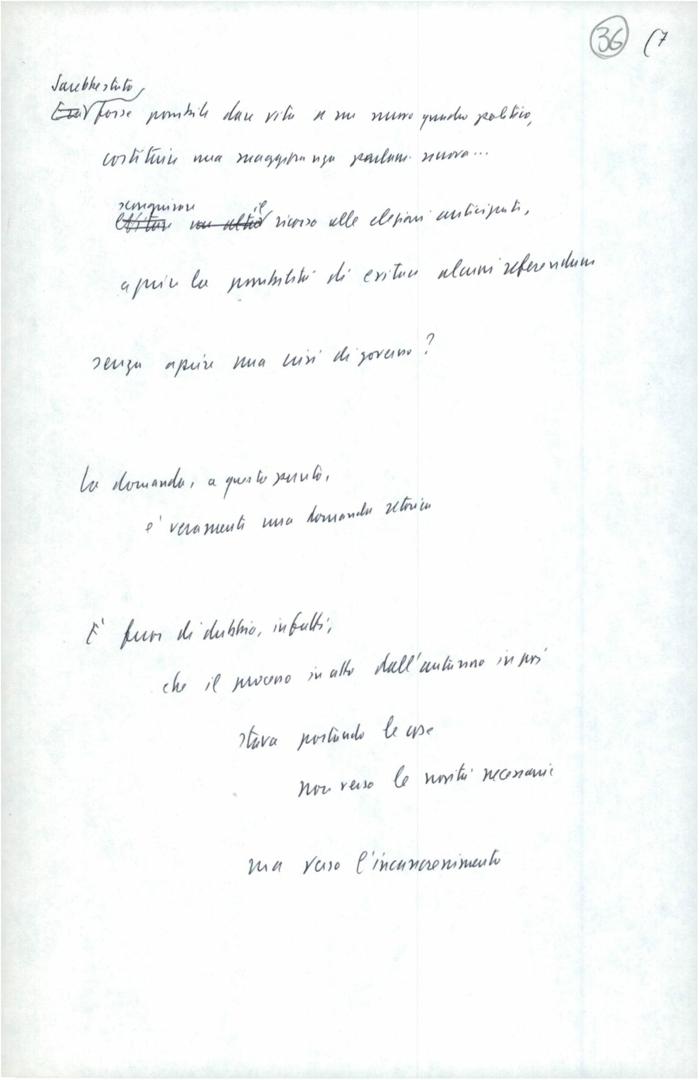 36 (7
Sarebbe stato,
Era forse possibile dare vita a un nuovo quadro politico,
costituire una maggioranza parlam. nuova...
scongiurare il
Evitare un altro ricorso alle elezioni anticipate,
aprire la possibilità di evitare alcuni referendum
senza aprire una crisi di governo?
La domanda, a questo punto,
e' veramente una domanda retorica
E' fuor di dubbio, infatti,
che il processo in atto dall'autunno in poi
stava portando le cose
non verso le novità necessarie
ma verso l'incancrenimento